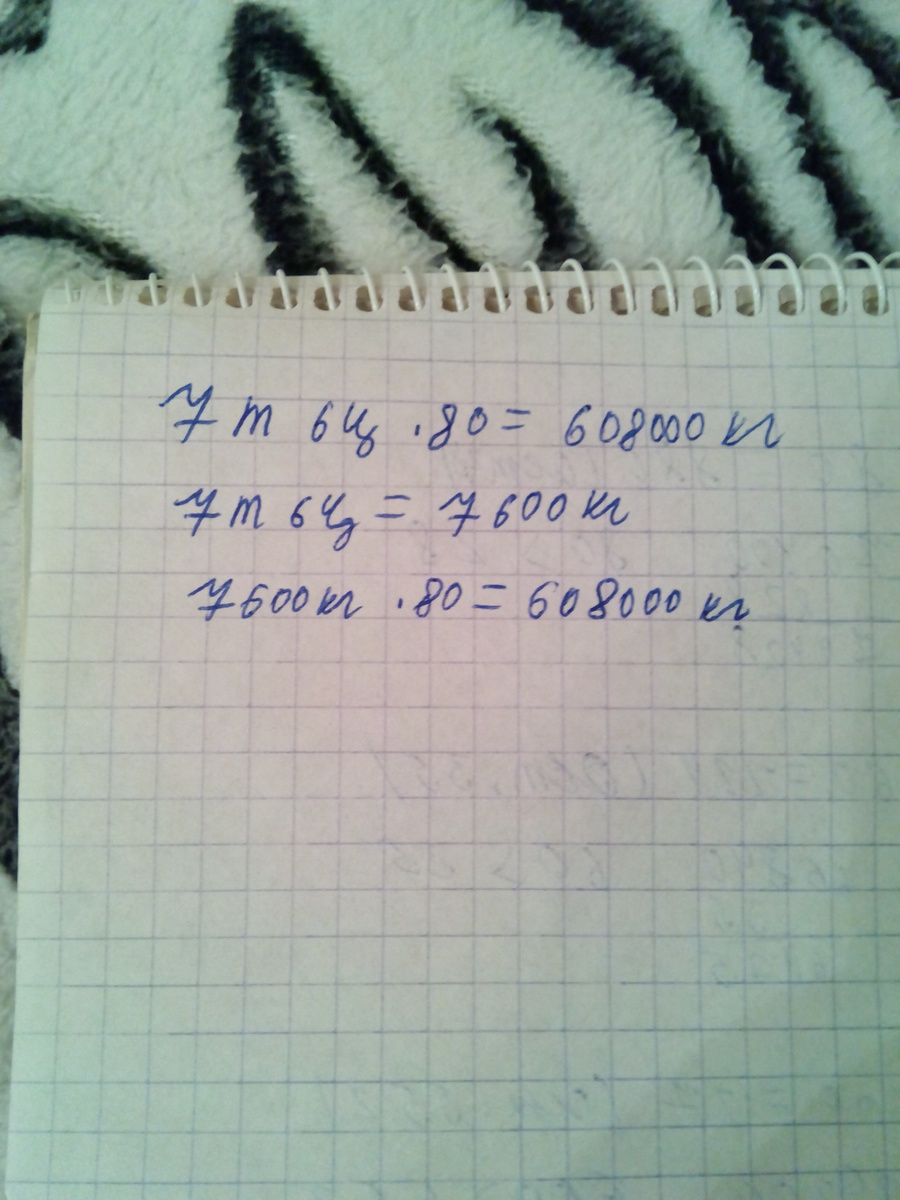 7 т 6 ц · 80 = 608000 кг
7 т 6 ц = 7600 кг
7600 кг · 80 = 608000 кг.